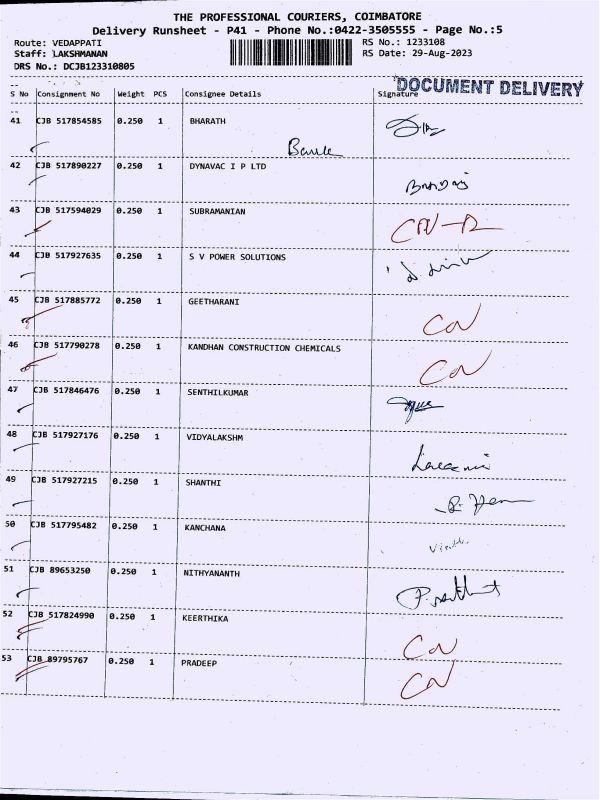 THE PROFESSIONAL COURIERS, COIMBATORE
Delivery Runsheet - P41 - Phone No.:0422-3505555 - Page No.:5
Route: VEDAPPATI RS No.: 1233108
Staff: LAKSHMANAN RS Date: 29-Aug-2023
DRS No.: DCJB123310805
DOCUMENT DELIVERY
S No Consignment No Weight PCS Consignee Details Signature
41 CJB 517854585 0.250 1 BHARATH
42 CJB 517890227 0.250 1 DYNAVAC I P LTD
43 CJB 517594029 0.250 1 SUBRAMANIAN
44 CJB 517927635 0.250 1 S V POWER SOLUTIONS
45 CJB 517885772 0.250 1 GEETHARANI
46 CJB 517790278 0.250 1 KANDHAN CONSTRUCTION CHEMICALS
47 CJB 517846476 0.250 1 SENTHILKUMAR
48 CJB 517927176 0.250 1 VIDYALAKSHM
49 CJB 517927215 0.250 1 SHANTHI
50 CJB 517795482 0.250 1 KANCHANA
51 CJB 89653250 0.250 1 NITHYANANTH
52 CJB 517824990 0.250 1 KEERTHIKA
53 CJB 89795767 0.250 1 PRADEEP